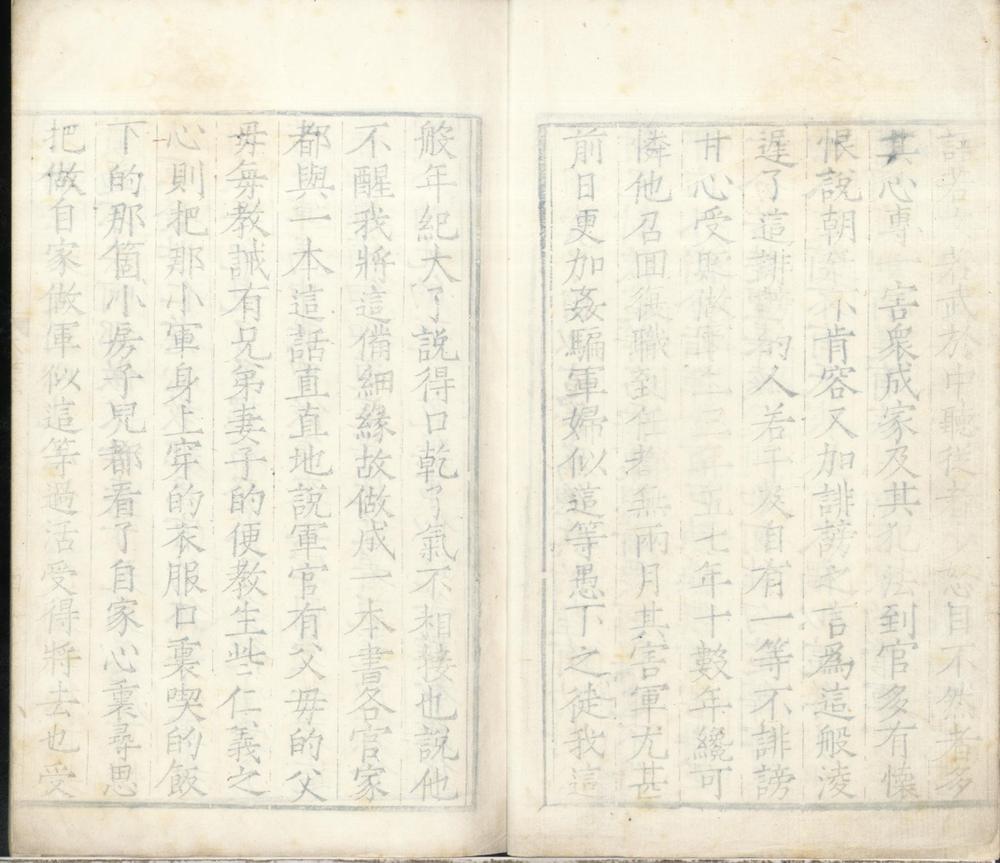 語若　者武於中聽從者　怒目不然者多
其心專　害衆成家及其犯法到官多有懷
恨說朝　不肯容又加誹謗之言爲這般淩
遲了這誹謗的人若干及自有一等不誹謗
甘心受　做軍二三年五七年十數年纔可
憐他召回復職到任者無兩月其害軍尤甚
前日更加姦騙軍婦似這等愚下之徒我這
般年紀大了說得口乾了氣不相接也說他
不醒我將這備細緣故做成一本書各官家
都與一本這話直直地說軍官有父毋的父
毋每教誡有兄弟妻子的便教生些仁義之
心則把那小軍身上穿的衣服口裏喫的飯
下的那箇小房子兒都看了自家心裏尋思
把做自家做軍似這等過活受得將去也受